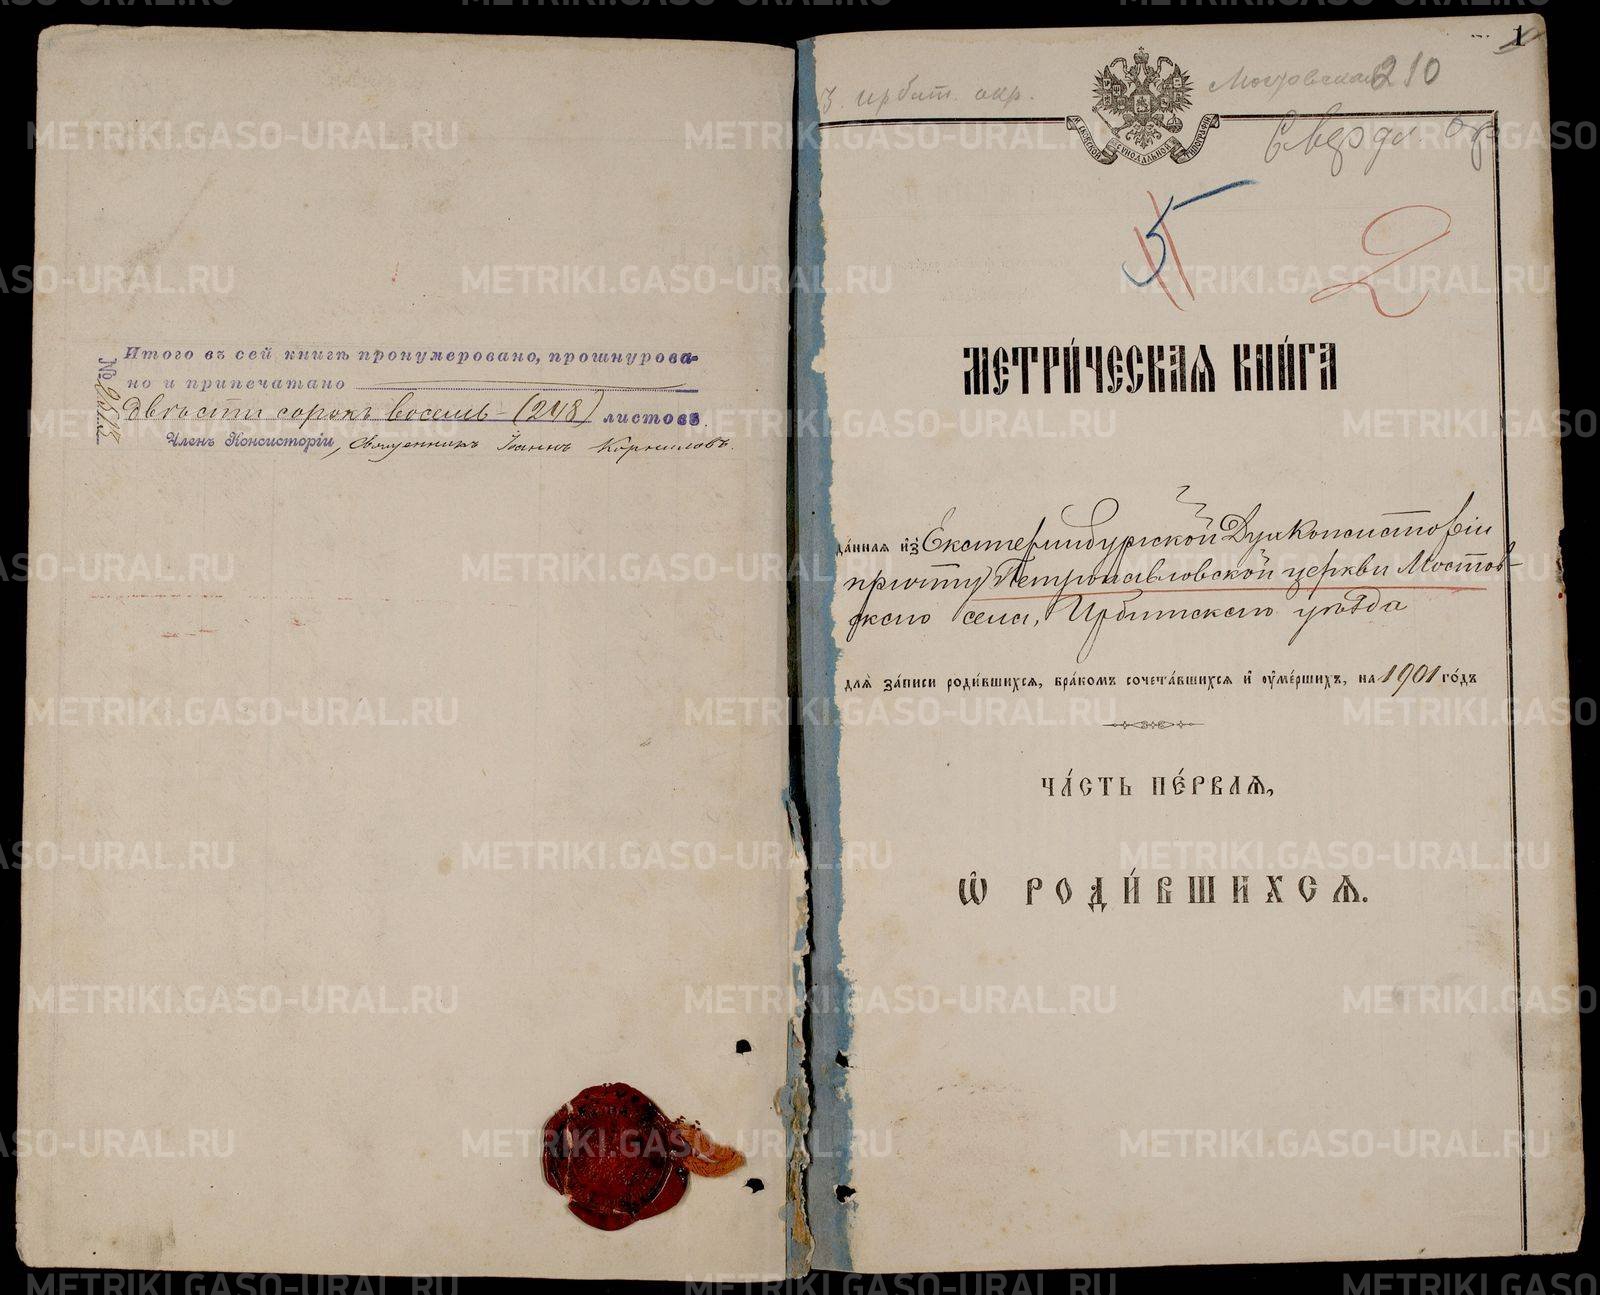 Итого въ сей книгѣ пронумеровано, прошнурова-
но и припечатано
двѣсти сорокъ восемь - (248) листовъ.
Членъ Консисторіи, Священникъ Іоаннъ Корниловъ.
№
1
З. ирбит. окр.
210
Свердл. окр
МОСКОВСКОЙ СѴНОДАЛЬНОЙ ТИПОГРАФІИ
5
2
МЕТРИ́ЧЕСКАѦ КНИ́ГА
да́ннаѧ и҆з̾ Екатеринбургской Дух Консисторіи
причту Петропавловской церкви Мостов-
скаго села, Ирбитскаго уѣзда
длѧ̀ за́писи роди́вшихсѧ, бра́комъ сочета́вшихсѧ и҆ ᲂу҆ме́ршихъ, на 1901 го́дъ
ЧА́СТЬ ПЕ́РВАѦ,
Ѽ РОДИ́ВШИХСѦ.
METRIKI.GASO-URAL.RU